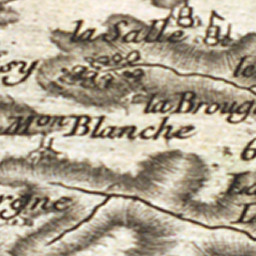 la Salle
sy
le
la Broug
Mon Blanche
6
La
rgne
L